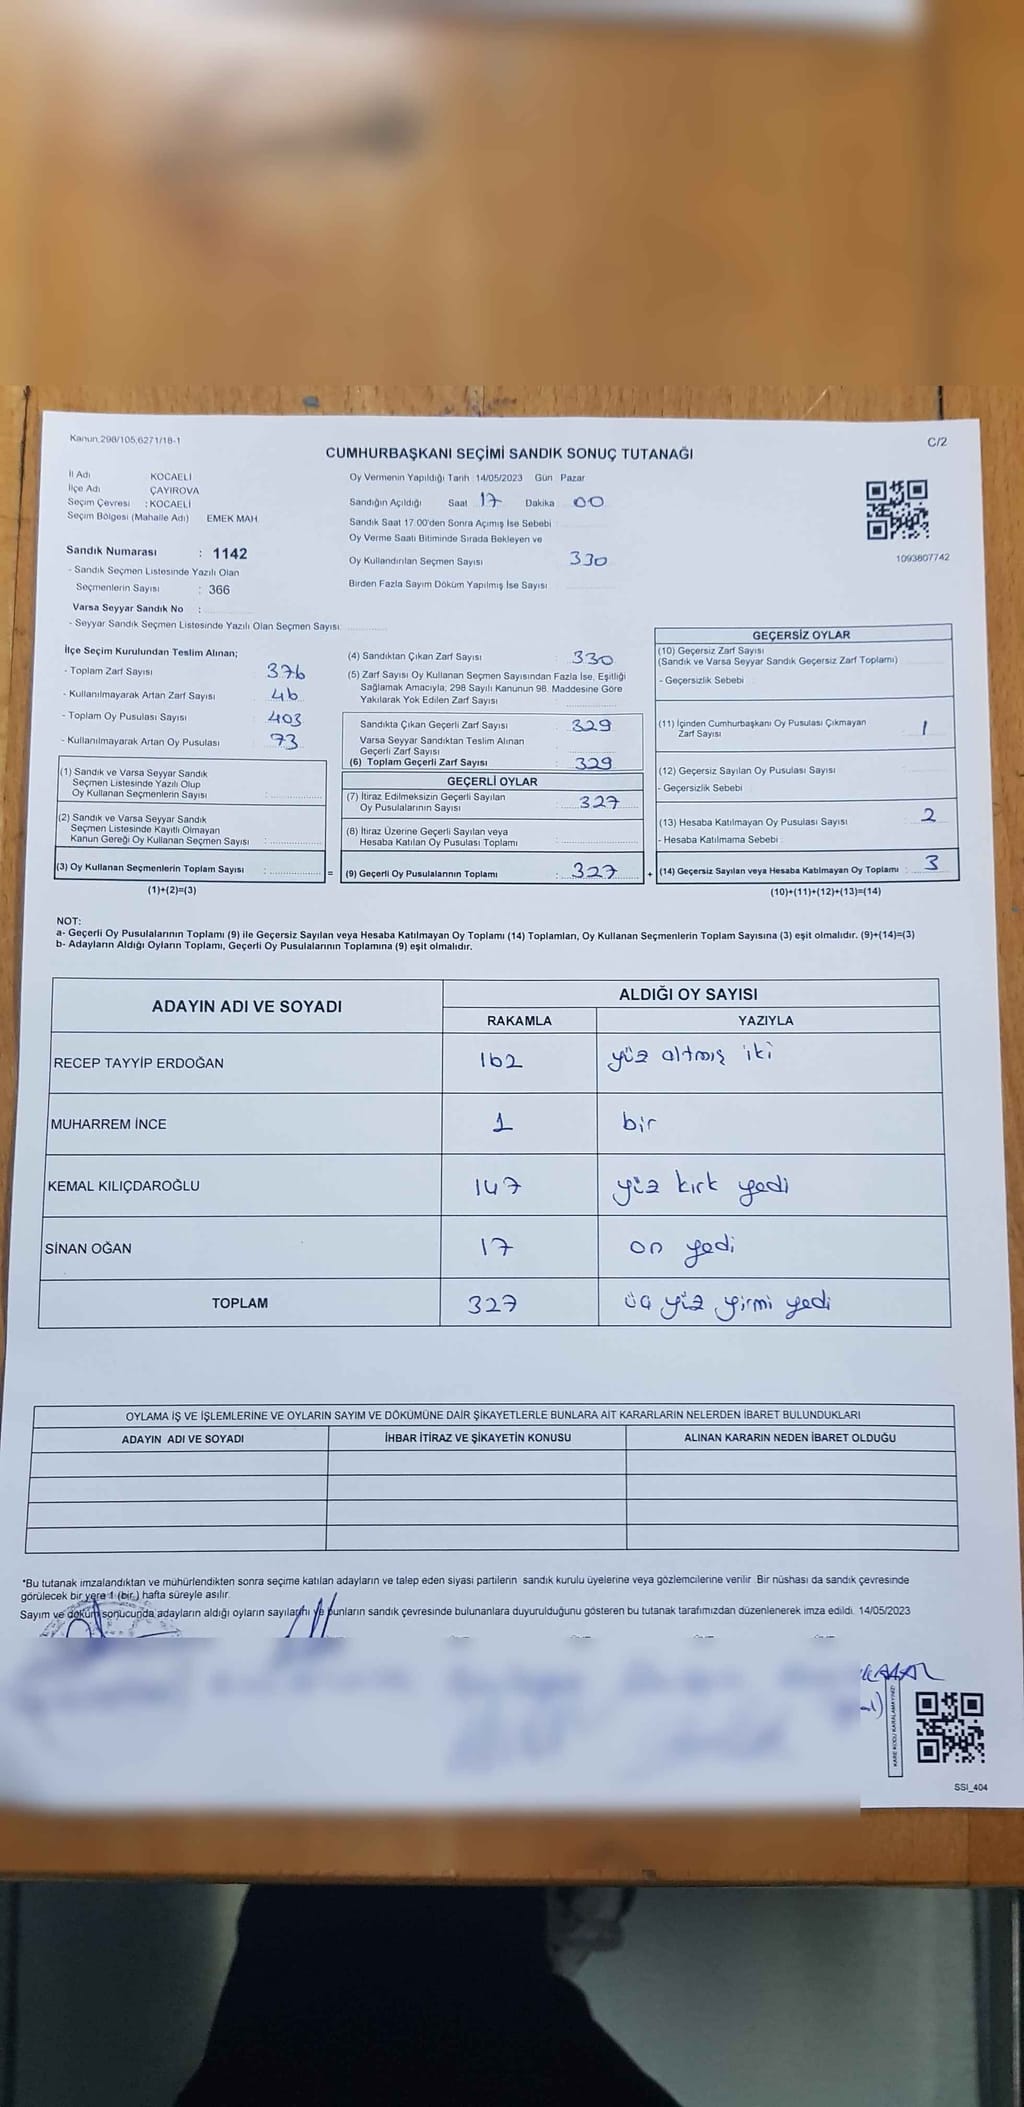 Kanun.298/105,6271/18-1
C/2
CUMHURBAŞKANI SEÇİMİ SANDIK SONUÇ TUTANAĞI
İl Adı KOCAELİ
İlçe Adı ÇAYIROVA
Seçim Çevresi : KOCAELİ
Seçim Bölgesi (Mahalle Adı) EMEK MAH
Sandık Numarası : 1142
- Sandık Seçmen Listesinde Yazılı Olan
Seçmenlerin Sayısı : 366
Varsa Seyyar Sandık No :
- Seyyar Sandık Seçmen Listesinde Yazılı Olan Seçmen Sayısı:
Oy Vermenin Yapıldığı Tarih : 14/05/2023 Gün Pazar
Sandığın Açıldığı Saat 17 Dakika 00
Sandık Saat 17.00'den Sonra Açımış İse Sebebi
Oy Verme Saati Bitiminde Sırada Bekleyen ve
Oy Kullandırılan Seçmen Sayısı 330
Birden Fazla Sayım Döküm Yapılmış İse Sayısı
1093807742
İlçe Seçim Kurulundan Teslim Alınan;
- Toplam Zarf Sayısı : 376
- Kullanılmayarak Artan Zarf Sayısı : 46
- Toplam Oy Pusulası Sayısı : 403
- Kullanılmayarak Artan Oy Pusulası : 73
(1) Sandık ve Varsa Seyyar Sandık
Seçmen Listesinde Yazılı Olup
Oy Kullanan Seçmenlerin Sayısı :
(2) Sandık ve Varsa Seyyar Sandık
Seçmen Listesinde Kayıtlı Olmayan
Kanun Gereği Oy Kullanan Seçmen Sayısı :
(3) Oy Kullanan Seçmenlerin Toplam Sayısı :
(1)+(2)=(3)
=
(4) Sandıktan Çıkan Zarf Sayısı : 330
(5) Zarf Sayısı Oy Kullanan Seçmen Sayısından Fazla İse, Eşitliği
Sağlamak Amacıyla; 298 Sayılı Kanunun 98. Maddesine Göre
Yakılarak Yok Edilen Zarf Sayısı
Sandıkta Çıkan Geçerli Zarf Sayısı : 329
Varsa Seyyar Sandıktan Teslim Alınan
Geçerli Zarf Sayısı
(6) Toplam Geçerli Zarf Sayısı : 329
GEÇERLİ OYLAR
(7) İtiraz Edilmeksizin Geçerli Sayılan
Oy Pusulalarının Sayısı : 327
(8) İtiraz Üzerine Geçerli Sayılan veya
Hesaba Katılan Oy Pusulası Toplamı
(9) Geçerli Oy Pusulalarının Toplamı : 327
+
GEÇERSİZ OYLAR
(10) Geçersiz Zarf Sayısı
(Sandık ve Varsa Seyyar Sandık Geçersiz Zarf Toplamı)
- Geçersizlik Sebebi
(11) İçinden Cumhurbaşkanı Oy Pusulası Çıkmayan
Zarf Sayısı 1
(12) Geçersiz Sayılan Oy Pusulası Sayısı
- Geçersizlik Sebebi
(13) Hesaba Katılmayan Oy Pusulası Sayısı 2
- Hesaba Katılmama Sebebi
(14) Geçersiz Sayılan veya Hesaba Katılmayan Oy Toplamı : 3
(10)+(11)+(12)+(13)=(14)
NOT:
a- Geçerli Oy Pusulalarının Toplamı (9) ile Geçersiz Sayılan veya Hesaba Katılmayan Oy Toplamı (14) Toplamları, Oy Kullanan Seçmenlerin Toplam Sayısına (3) eşit olmalıdır. (9)+(14)=(3)
b- Adayların Aldığı Oyların Toplamı, Geçerli Oy Pusulalarının Toplamına (9) eşit olmalıdır.
ADAYIN ADI VE SOYADI
ALDIĞI OY SAYISI
RAKAMLA YAZIYLA
RECEP TAYYİP ERDOĞAN 162 yüz altmış iki
MUHARREM İNCE 1 bir
KEMAL KILIÇDAROĞLU 147 yüz kırk yedi
SİNAN OĞAN 17 on yedi
TOPLAM 327 üç yüz yirmi yedi
OYLAMA İŞ VE İŞLEMLERİNE VE OYLARIN SAYIM VE DÖKÜMÜNE DAİR ŞİKAYETLERLE BUNLARA AİT KARARLARIN NELERDEN İBARET BULUNDUKLARI
ADAYIN ADI VE SOYADI İHBAR İTİRAZ VE ŞİKAYETİN KONUSU ALINAN KARARIN NEDEN İBARET OLDUĞU
*Bu tutanak imzalandıktan ve mühürlendikten sonra seçime katılan adayların ve talep eden siyasi partilerin sandık kurulu üyelerine veya gözlemcilerine verilir. Bir nüshası da sandık çevresinde
görülecek bir yere 1 (bir.) hafta süreyle asılır.
Sayım ve döküm sonucunda adayların aldığı oyların sayılarını ve bunların sandık çevresinde bulunanlara duyurulduğunu gösteren bu tutanak tarafımızdan düzenlenerek imza edildi. 14/05/2023
KARE KODU KARALAMAYINIZ!
SSI_404